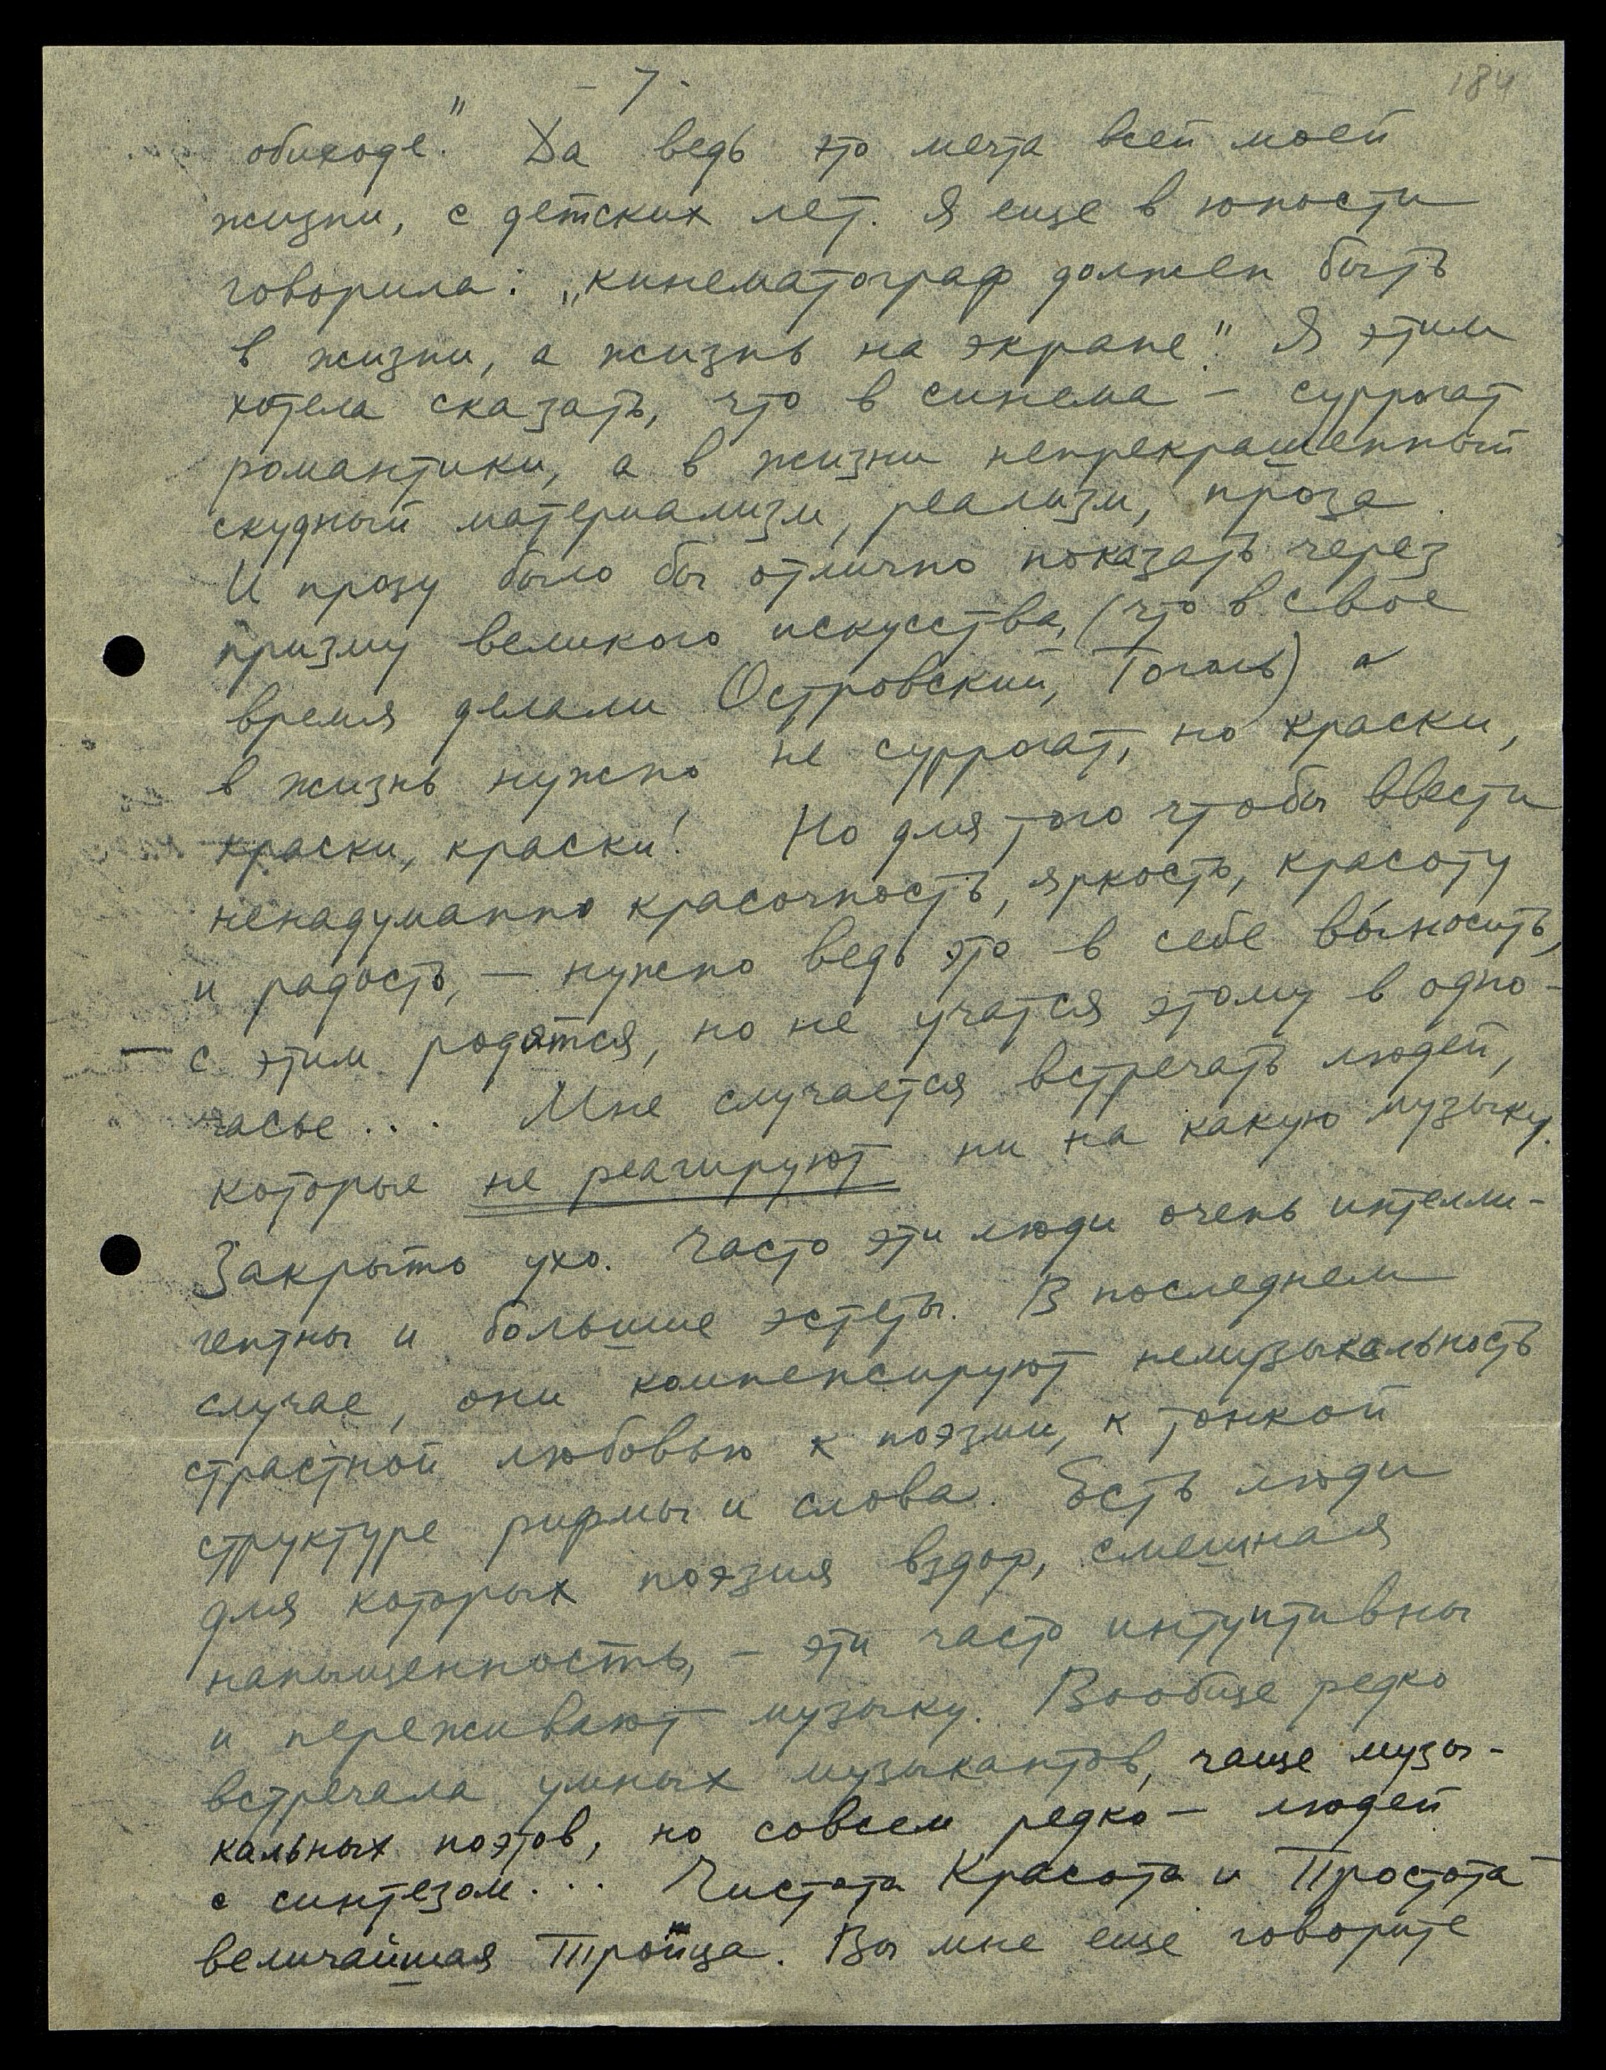 - 7 -
184
обиходе." Да ведь это мечта всей моей
жизни, с детских лет. Я еще в юности
говорила: „кинематограф должен быть
в жизни, а жизнь на экране". Я этим
хотела сказать, что в синема - суррогат
романтики, а в жизни неприкрашенный
скудный материализм, реализм, проза.
И прозу было бы отлично показать через
призму великого искусства, (что в свое
время делали Островский, Гоголь) а
в жизнь нужно не суррогат, но краски,
краски, краски! Но для того чтобы ввести
ненадуманно красочность, яркость, красоту
и радость, - нужно ведь это в себе выносить,
с этим родятся, но не учатся этому в одно-
часье.... Мне случается встречать людей,
которые не реагируют ни на какую музыку.
Закрыто ухо. Часто эти люди очень интелли-
гентны и большие эстеты. В последнем
случае, они компенсируют немузыкальность
страстной любовью к поэзии, к тонкой
структуре рифмы и слова. Есть люди
для которых поэзия вздор, смешная
напыщенность, - эти часто интуитивны
и переживают музыку. Вообще редко
встречала умных музыкантов, чаще музы-
кальных поэтов, но совсем редко - людей
с синтезом... Чистота Красота и Простота -
величайшая Тройца. Вы мне еще говорите